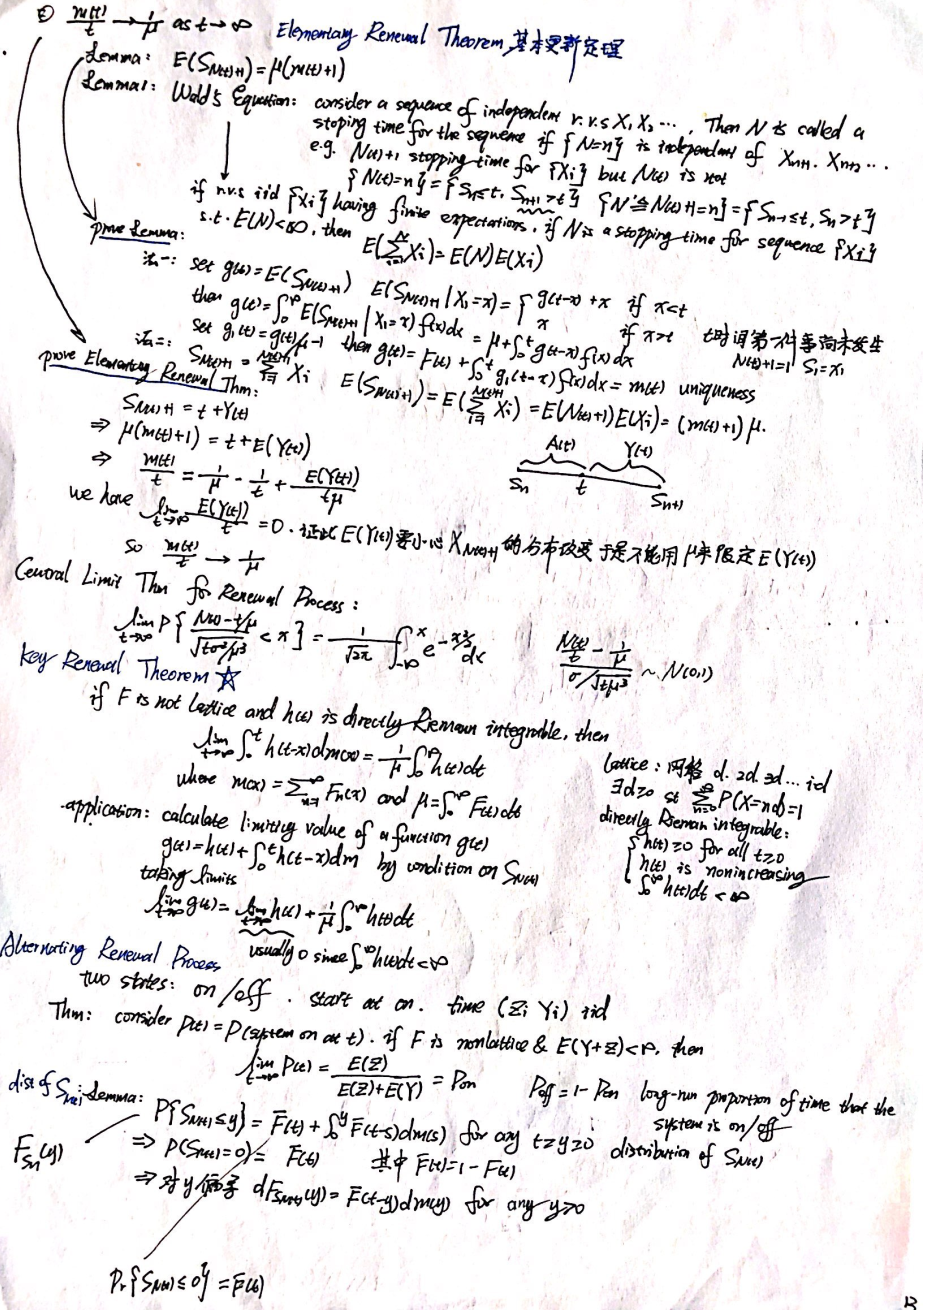 ② m(t)/t → 1/μ as t→∞ Elementary Renewal Theorem 基本更新定理
Lemma: E(S_{N(t)+1}) = μ(m(t)+1)
Lemma1: Wald's Equation: consider a sequence of independent r.v.s X₁ X₂ ..., Then N is called a
stoping time for the sequence if {N=n} is independent of X_{n+1}, X_{n+2} ...
e.g. N(t)+1 stopping time for {Xi} but N(t) is not
{N(t)=n} = {Sn≤t, S_{n+1}>t} {N'≜N(t)+1=n} = {S_{n-1}≤t, Sn>t}
if r.v.s iid {Xi} having finite expectations, if N is a stopping time for sequence {Xi}
s.t. E(N)<∞, then
E(∑_{i=1}^N Xi) = E(N)E(Xi)
prove Lemma:
法一: set g(t) = E(S_{N(t)+1}) E(S_{N(t)+1} | X₁=x) = { g(t-x)+x if x<t
x if x>t t时间第一件事尚未发生
N(t)+1=1 S₁=x₁
then g(t) = ∫_0^∞ E(S_{N(t)+1} | X₁=x) f(x)dx = μ + ∫_0^t g(t-x) f(x)dx
set g₁(t) = g(t)/μ - 1 then g₁(t) = F(t) + ∫_0^t g₁(t-x) f(x)dx = m(t) uniqueness
法二: S_{N(t)+1} = ∑_{i=1}^{N(t)+1} Xi E(S_{N(t)+1}) = E(∑_{i=1}^{N(t)+1} Xi) = E(N(t)+1)E(Xi) = (m(t)+1)μ.
prove Elementary Renewal Thm:
S_{N(t)+1} = t + Y(t)
⇒ μ(m(t)+1) = t + E(Y(t))
⇒ m(t)/t = 1/μ - 1/t + E(Y(t))/tμ
A(t) Y(t)
Sn t S_{n+1}
we have lim_{t→∞} E(Y(t))/t = 0. 证此E(Y(t))要小心X_{N(t)+1}的分布改变 于是不能用μ来限定E(Y(t))
So m(t)/t → 1/μ
Central Limit Thm for Renewal Process:
lim_{t→∞} P{ (N(t) - t/μ)/√(tσ²/μ³) < x } = 1/√2π ∫_{-∞}^x e^{-x²/2} dx (N(t)/t - 1/μ)/(σ/√(tμ³)) ~ N(0,1)
Key Renewal Theorem ☆
if F is not lattice and h(t) is directly Riemann integrable, then
lim_{t→∞} ∫_0^t h(t-x)dm(x) = 1/μ ∫_0^∞ h(t)dt
where m(x) = ∑_{n=1}^∞ Fn(x) and μ = ∫_0^∞ F̄(t)dt
lattice: 网格 d. 2d 3d ... id
∃d≥0 st ∑_{n=0}^∞ P(X=nd)=1
directly Rieman integrable:
{ h(t)≥0 for all t≥0
h(t) is nonincreasing
∫_0^∞ h(t)dt < ∞
-application: calculate limiting value of a function g(t)
g(t) = h(t) + ∫_0^t h(t-x)dm by condition on S_{N(t)}
taking limits
lim_{t→∞} g(t) = lim_{t→∞} h(t) + 1/μ ∫_0^∞ h(t)dt
usually 0 since ∫_0^∞ h(t)dt<∞
Alternating Renewal Process
two states: on/off. start at on. time (Zi Yi) iid
Thm: consider P(t) = P(system on at t). if F is nonlattice & E(Y+Z)<∞, then
lim_{t→∞} P(t) = E(Z)/(E(Z)+E(Y)) = Pon Poff = 1 - Pon long-run proportion of time that the
system is on/off
dist of S_{N(t)} Lemma:
P{S_{N(t)}≤y} = F̄(t) + ∫_0^y F̄(t-s)dm(s) for any t≥y≥0 distribution of S_{N(t)}
F_{Sn}(y)
⇒ P(S_{N(t)}=0) = F̄(t) 其中 F̄(t)=1-F(t)
⇒ 对y偏导 dF_{S_{N(t)}}(y) = F̄(t-y)dm(y) for any y>0
Pr{S_{N(t)}≤0} = F̄(t)
13